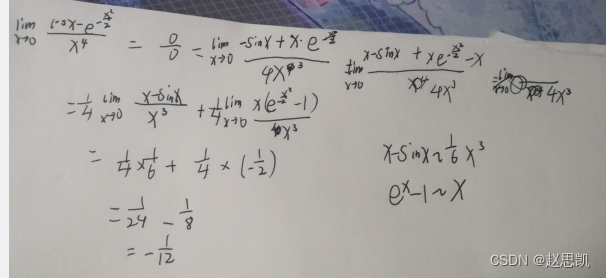 lim x→0 (cosx - e^(-x²/2)) / x⁴ = 0/0 = lim x→0 (-sinx + x·e^(-x²/2)) / 4x³ lim x→0 (x-sinx + xe^(-x²/2) - x) / 4x³ = lim x→0 / 4x³
= 1/4 lim x→0 (x-sinx) / x³ + 1/4 lim x→0 x(e^(-x²/2) - 1) / x³
= 1/4 × 1/6 + 1/4 × (-1/2)
x-sinx ~ 1/6 x³
e^x - 1 ~ x
= 1/24 - 1/8
= - 1/12
CSDN @赵思凯